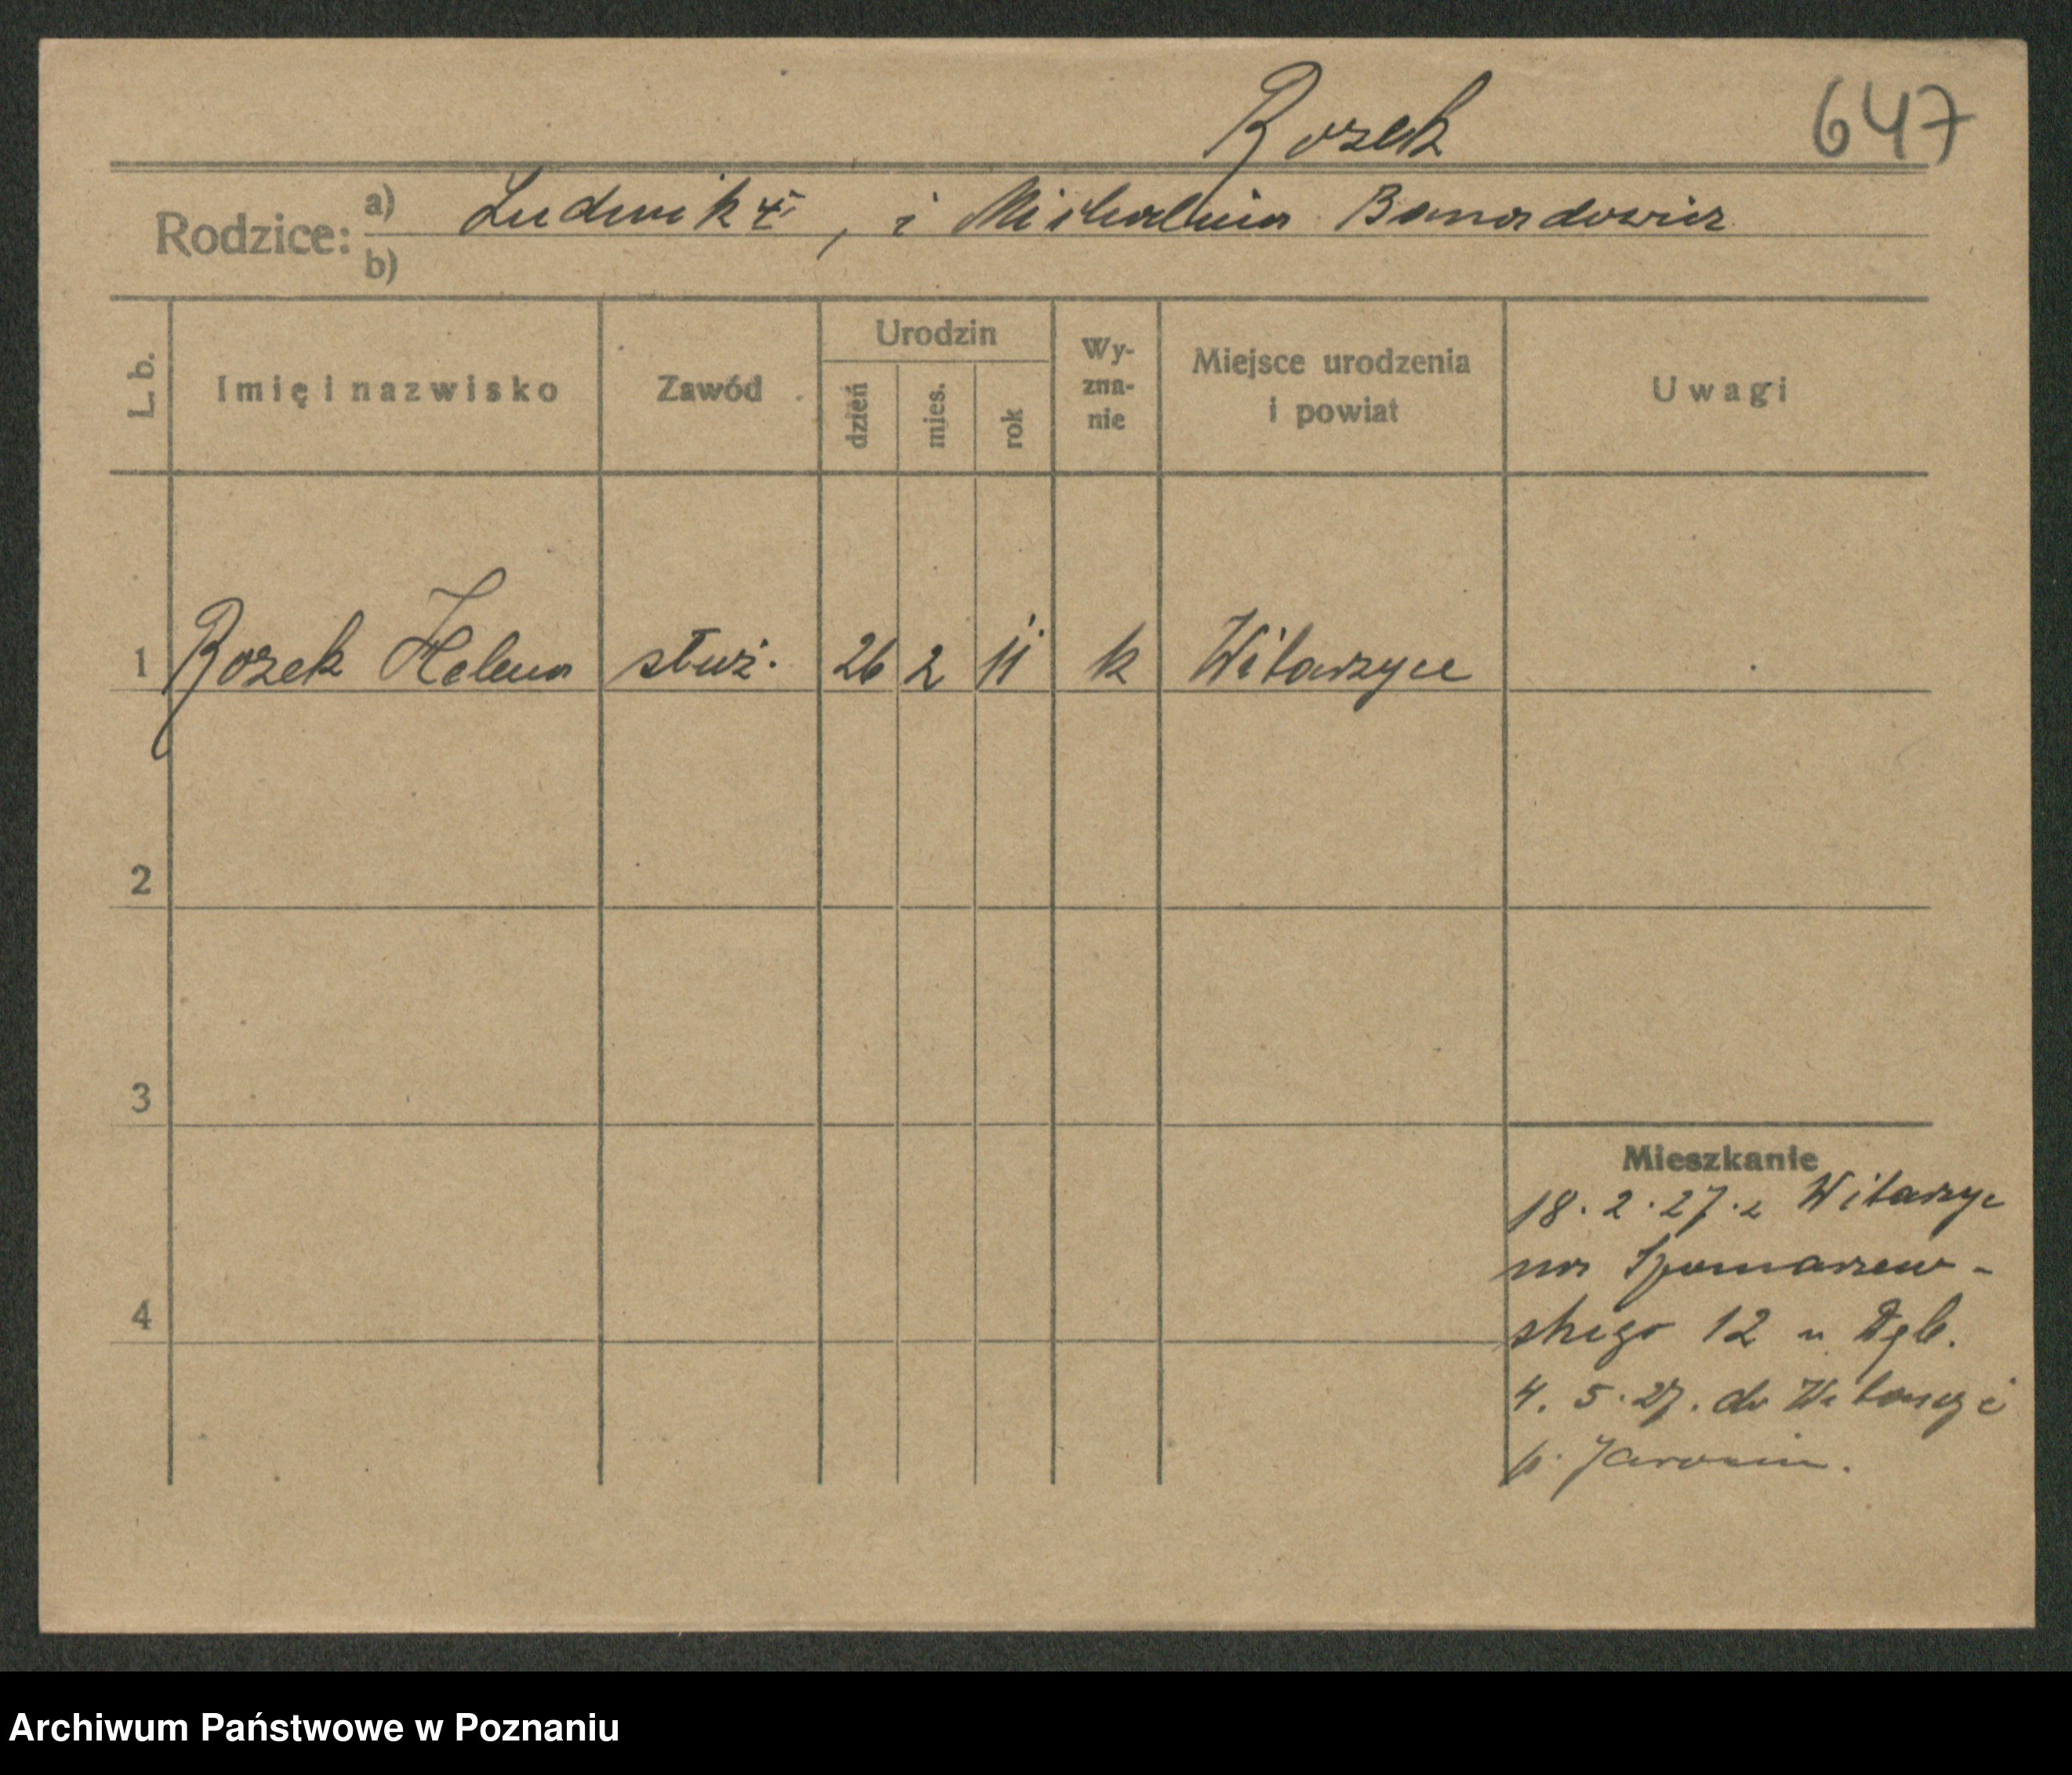 Rozek 647
Rodzice: a) Ludwik, i Michalina Banadowicz
b)
L. b. Imię i nazwisko Zawód Urodzin dzień mies. rok Wy-zna-nie Miejsce urodzenia i powiat Uwagi
1 Rozek Helena służ. 26 2 11 k Witarzyce
2
3
Mieszkanie
18. 2. 27. z Witarzyc
na Spomarzew-
4 skiego 12 u
4. 5. 27. do
p. Jarocin.
Archiwum Państwowe w Poznaniu